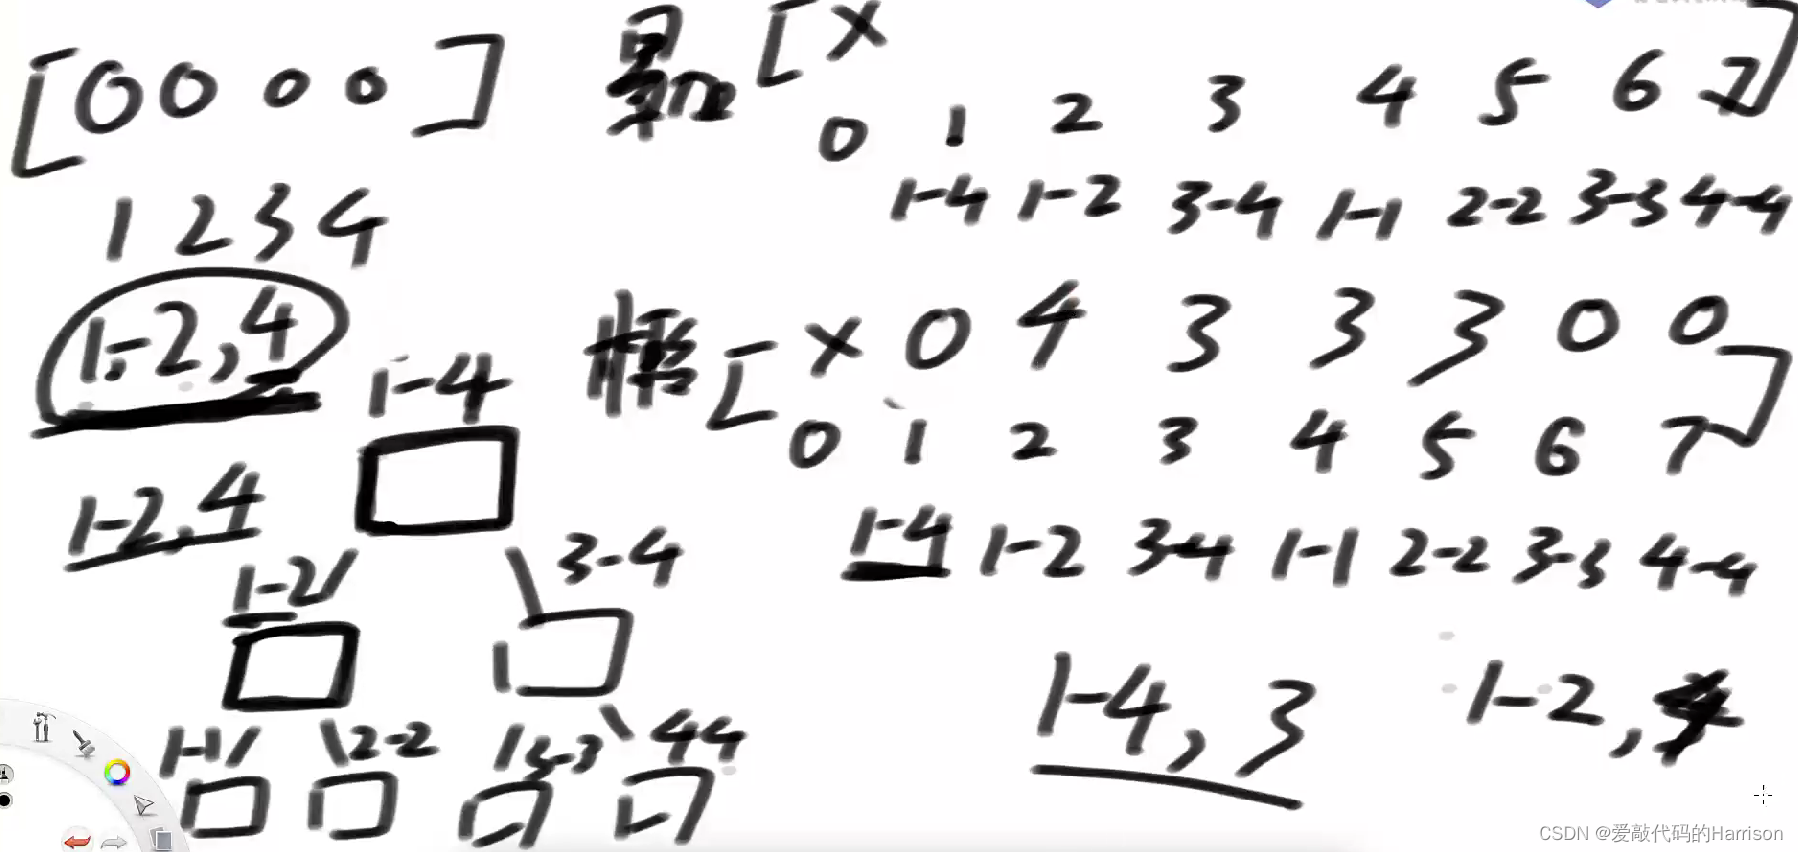 [ 0 0 0 0 ]
1 2 3 4
1-2, 4
1-2, 4
1-4
1-2 3-4
1-1 2-2 3-3 4 4
累加 [ X 1 2 3 4 5 6 7 ]
0 1 2 3 4 5 6 7
1-4 1-2 3-4 1-1 2-2 3-3 4-4
懒 [ X 0 4 3 3 3 0 0 ]
0 1 2 3 4 5 6 7
1-4 1-2 3-4 1-1 2-2 3-3 4-4
1-4, 3
1-2, 4
CSDN @爱敲代码的Harrison